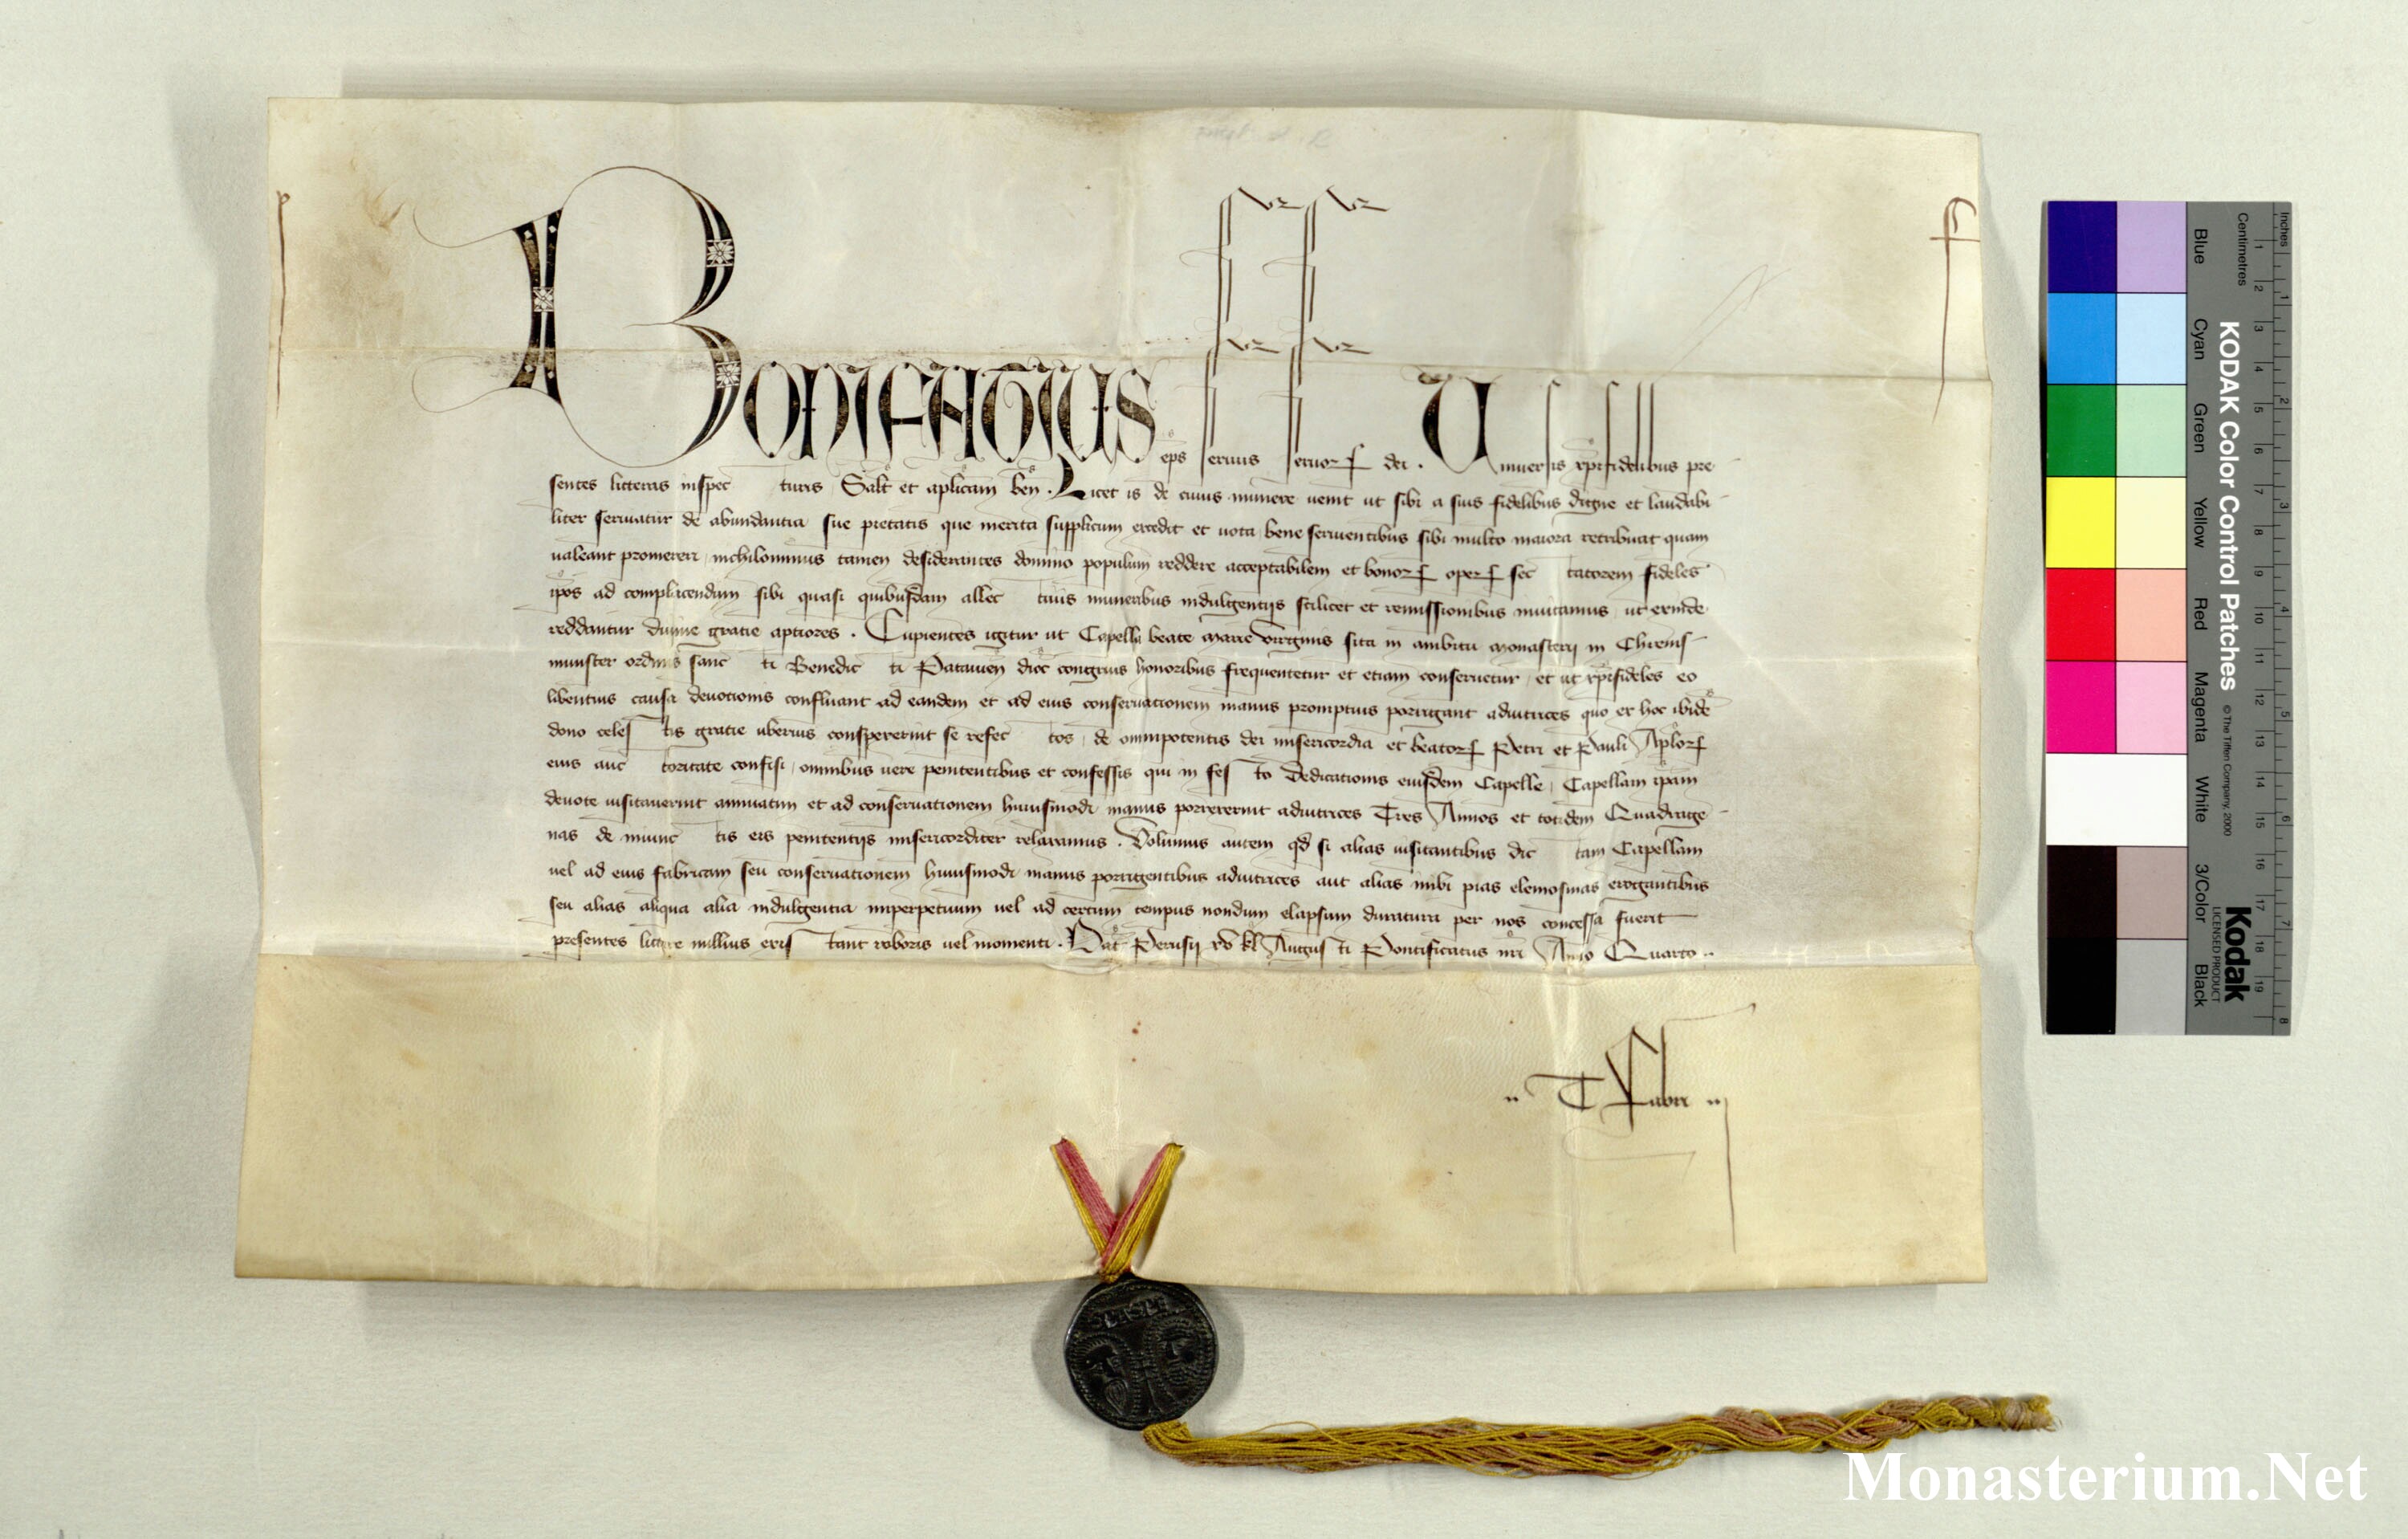 BONIFATIUS eps seruus seruor dei . Uniuersis xpifidelibus pre
sentes litteras inspec turis Salt et aplicam ben . Licet is de cuius munere uenit ut sibi a suis fidelibus digne et laudabi
liter seruiatur de abundantia sue pietatis que merita supplicum excedit et uota bene seruientibus sibi multo maiora retribuat quam
ualeant promereri nichilominus tamen desiderantes domino populum reddere acceptabilem et bonor oper sec tatorem fideles
ipos ad complacendum sibi quasi quibusdam allec tiuis muneribus indulgentijs scilicet et remissionibus inuitamus ut exinde
reddantur diuine gratie aptiores . Cupientes igitur ut Capella beate Marie Virginis sita in ambitu Monasterij in Chrems
munster ordinis sanc ti Benedic ti Patauien dioc congruis honoribus frequentetur et etiam conseruetur et ut xpifideles eo
libentius causa deuotionis confluant ad eandem et ad eius conseruationem manus promptius porrigant adiutrices quo ex hoc ibide
dono celes tis gratie uberius conspexerint se refec tos , de omnipotentis dei misericordia et beator Petri et Pauli Aplor
eius auc toritate confisi , omnibus uere penitentibus et confessis qui in fes to Dedicationis eiusdem Capelle , Capellam ipam
deuote uisitauerint annuatim et ad conseruationem huiusmodi manus porrexerint adiutrices Tres Annos et totidem Quadrage
nas de iniunc tis eis penitentijs misericorditer relaxamus . Volumus autem qd si alias uisitantibus dic tam Capellam
uel ad eius fabricam seu conseruationem huiusmodi manus porrigentibus adiutrices aut alias inibi pias elemosinas erogantibus
seu alias aliqua alia indulgentia imperpetuum uel ad certum tempus nondum elapsum duratura per nos concessa fuerit
presentes littere nullius exis tant roboris uel momenti . Dat Perusij xv kl Augus ti Pontificatus nri Anno Quarto ..
.. T Fabri ..
SPASPE
KODAK Color Control Patches
© The Tiffen Company, 2000
Kodak
LICENSED PRODUCT
Inches
Centimetres
Blue
Cyan
Green
Yellow
Red
Magenta
White
3/Color
Black
Monasterium.Net